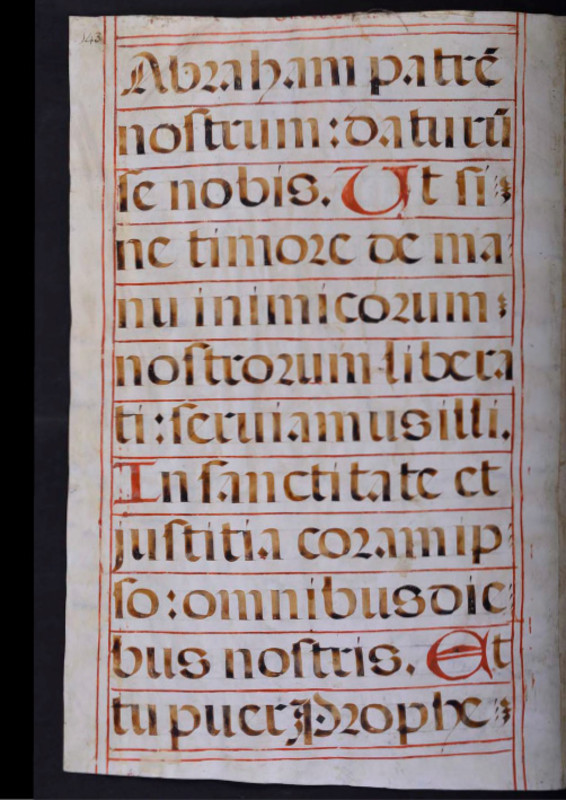 143
Abraham patrē
noſtrum : daturū
ſe nobis. Ut ſi
ne timore de ma
nu inimicorum
noſtrorum libera
ti : ſeruiamus illi.
In ſanctitate et
juſtitia coram ip
ſo : omnibus die
bus noſtris. Et
tu puer Prophe